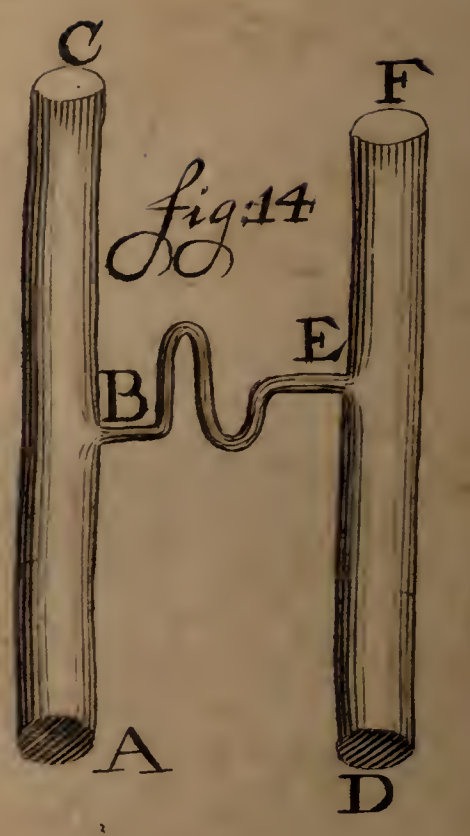 C
F
fig:14
E
B
A
D